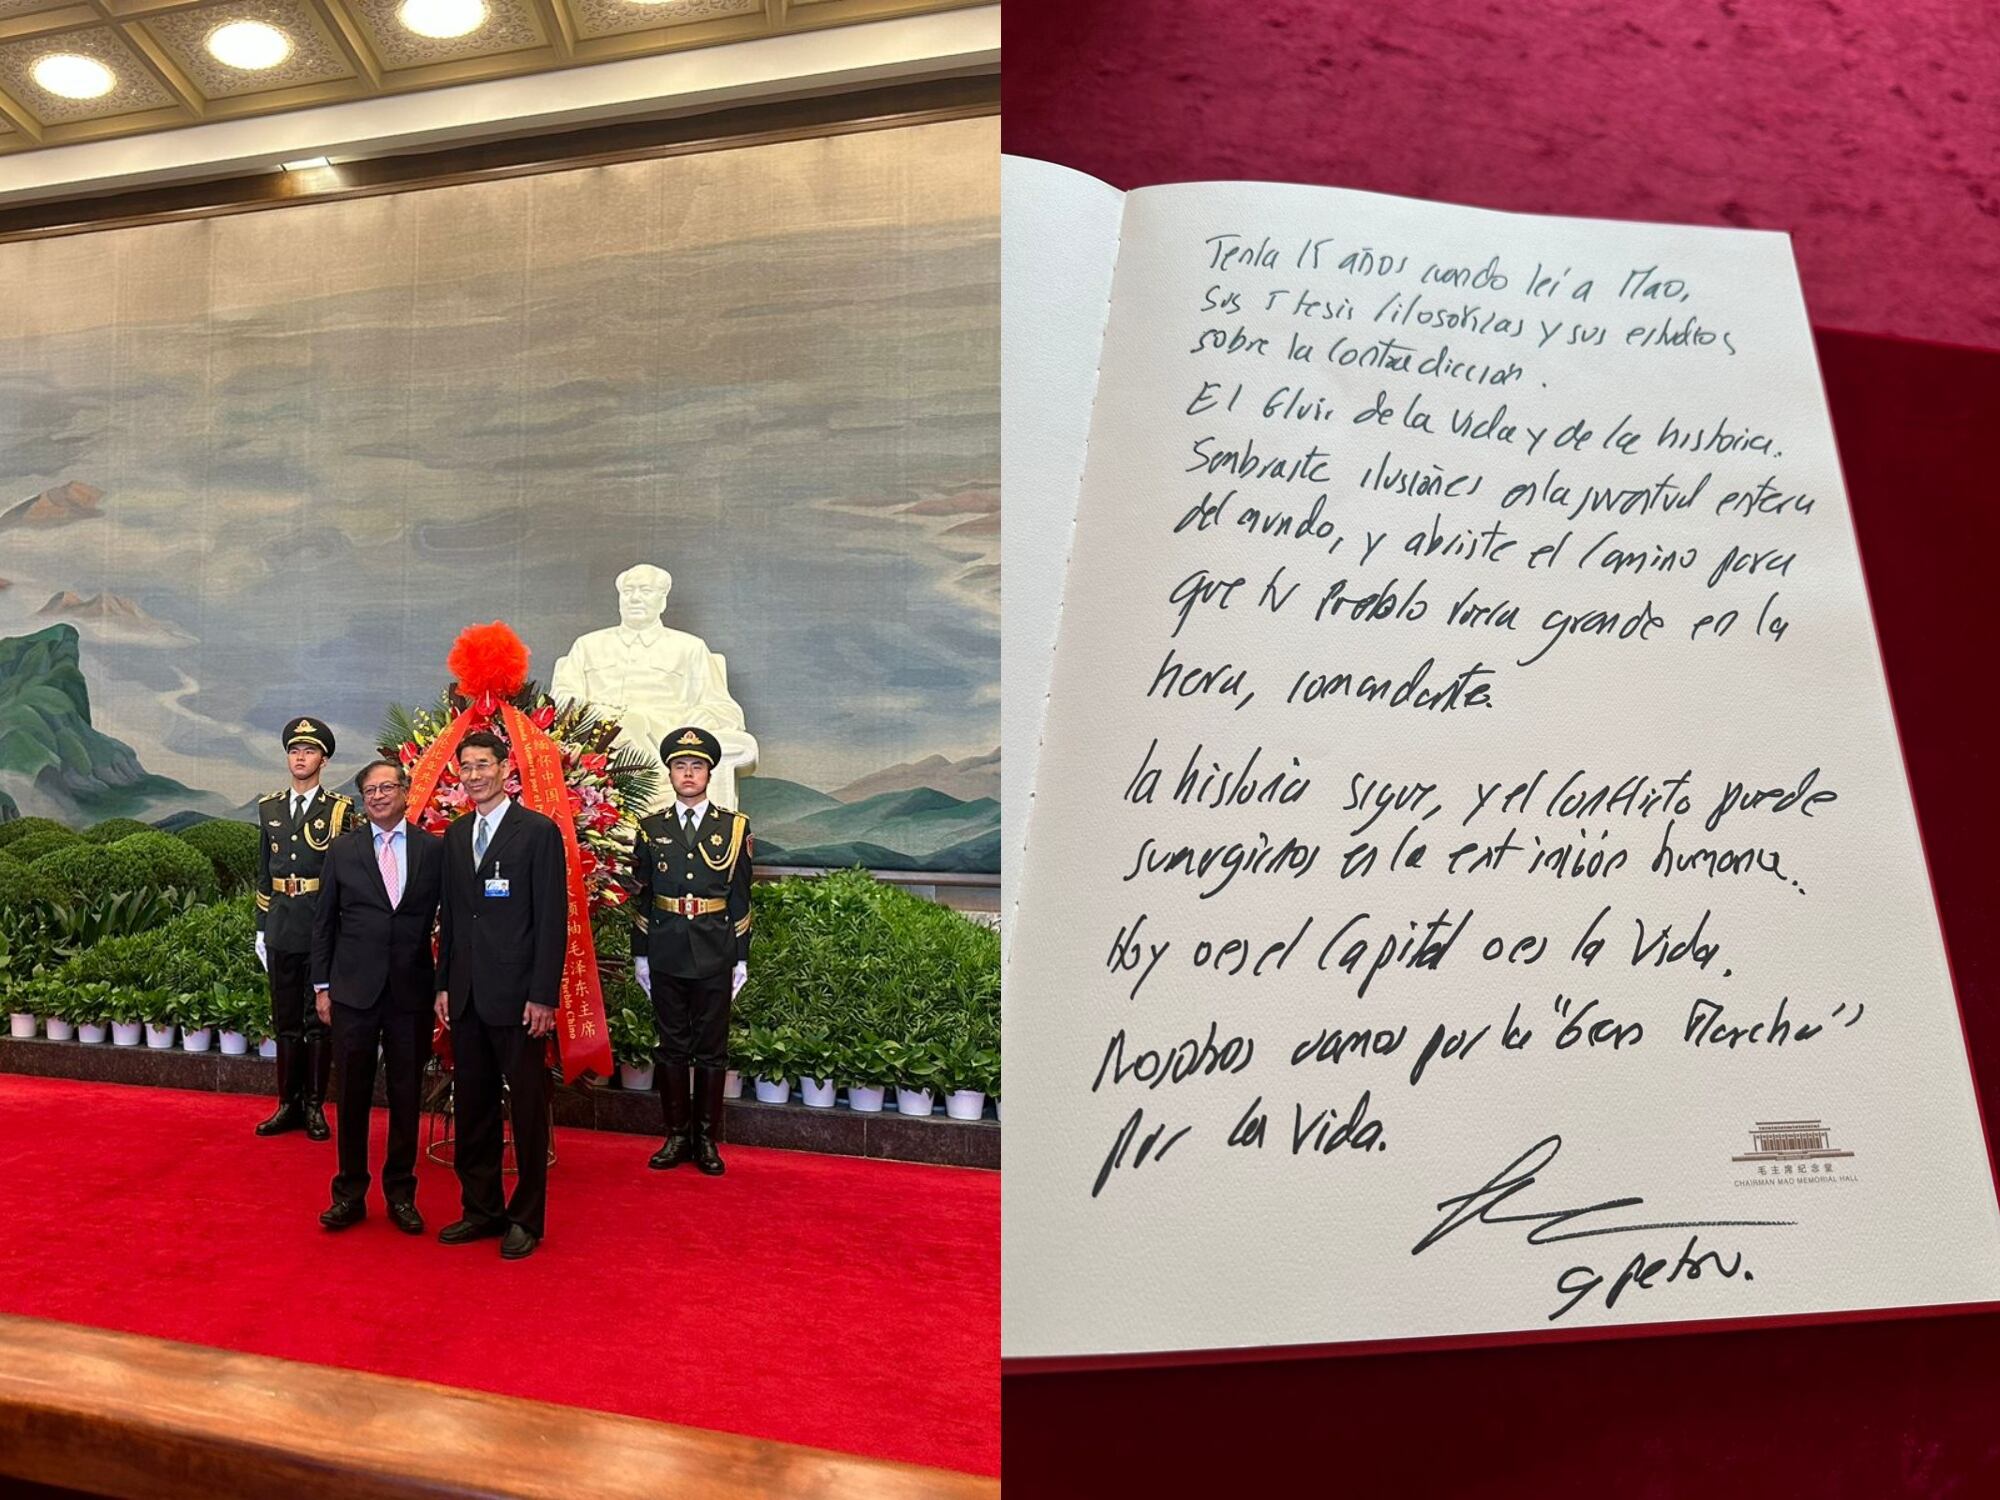 缅怀中国人
大领袖毛泽东主席
Pueblo Chino
Tenía 15 años cuando leí a Mao,
sus 5 tesis filosóficas y sus estudios
sobre la contradicción.
El fluir de la vida y de la historia.
Sembraste ilusiones en la juventud entera
del mundo, y abriste el camino para
que tu Pueblo fuera grande en la
hera, comandante.
la historia sigue, y el conflicto puede
sumergirnos en la extinción humana.
Hoy o es el Capital o es la Vida.
Nosotros vamos por la "Gran Marcha"
por la Vida.
毛主席纪念堂
CHAIRMAN MAO MEMORIAL HALL
G Petro.